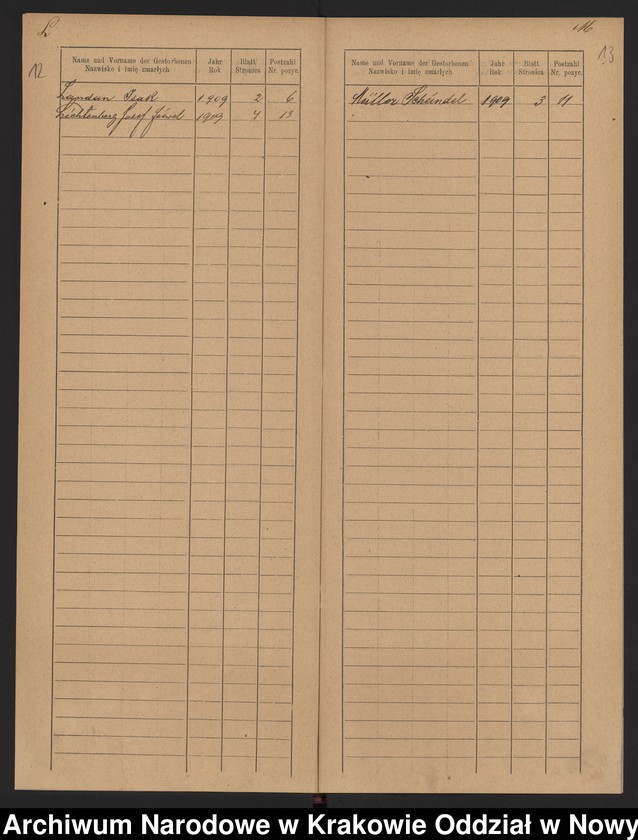 L
12
Name und Vorname der Gestorbenen
Nazwisko i imię zmarłych
Jahr
Rok
Blatt
Stronica
Postzahl
Nr. pozyc.
Landan Isak 1909 2 6
Lichtenberg Josef 1909 4 13
M
13
Name und Vorname der Gestorbenen
Nazwisko i imię zmarłych
Jahr
Rok
Blatt
Stronica
Postzahl
Nr. pozyc.
Müller Scheindel 1909 3 11
Archiwum Narodowe w Krakowie Oddział w Nowy